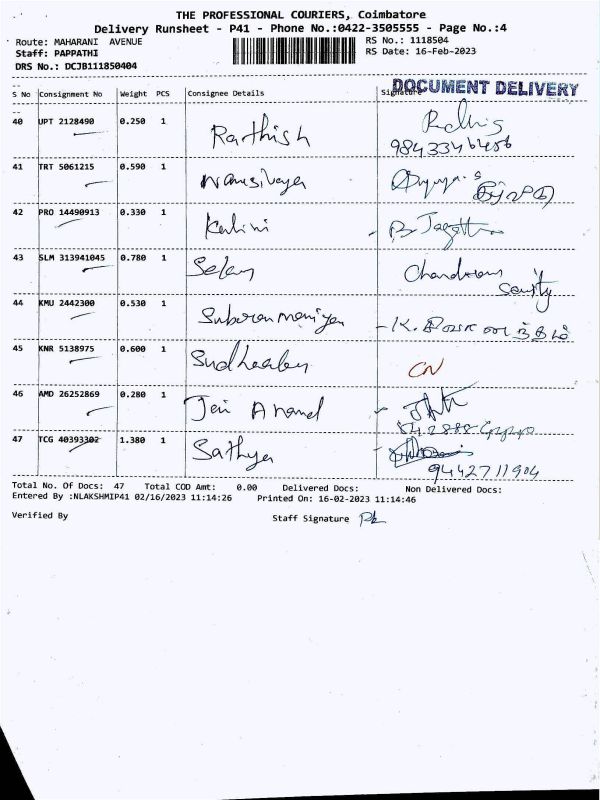 THE PROFESSIONAL COURIERS, Coimbatore
Delivery Runsheet - P41 - Phone No.:0422-3505555 - Page No.:4
Route: MAHARANI AVENUE
RS No.: 1118504
Staff: PAPPATHI
RS Date: 16-Feb-2023
DRS No.: DCJB111850404
DOCUMENT DELIVERY
S No Consignment No Weight PCS Consignee Details Signature
40 UPT 2128490 0.250 1 Rathish
41 TRT 5061215 0.590 1
42 PRO 14490913 0.330 1 Kalini B. Jagath
43 SLM 313941045 0.780 1 Selam Chandran
44 KMU 2442300 0.530 1 Subaramaniyan
45 KNR 5138975 0.600 1 CN
46 AMD 26252869 0.280 1 Jei Anand
47 TCG 40393302 1.380 1 Sathya
9442711904
Total No. Of Docs: 47 Total COD Amt: 0.00 Delivered Docs: Non Delivered Docs:
Entered By :NLAKSHMIP41 02/16/2023 11:14:26 Printed On: 16-02-2023 11:14:46
Verified By Staff Signature